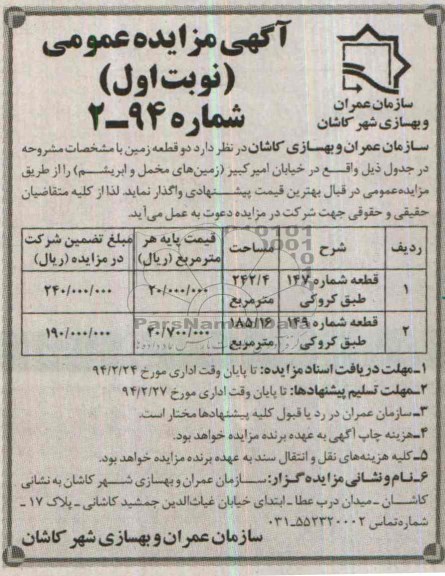 آگهی مزایده عمومی
(نوبت اول)
شماره ۹۴ـ۲
سازمان عمران
و بهسازی شهر کاشان
سازمان عمران و بهسازی کاشان در نظر دارد دو قطعه زمین با مشخصات مشروحه
در جدول ذیل واقع در خیابان امیرکبیر (زمین‌های مخمل و ابریشم) را از طریق
مزایده‌عمومی در قبال بهترین قیمت پیشنهادی واگذار نماید. لذا از کلیه متقاضیان
حقیقی و حقوقی جهت شرکت در مزایده دعوت به عمل می‌آید.
ردیف شرح مساحت قیمت پایه هر مترمربع (ریال) مبلغ تضمین شرکت در مزایده (ریال)
۱ قطعه شماره ۱۴۷ طبق کروکی ۲۴۲/۴ مترمربع ۲۰/۰۰۰/۰۰۰ ۲۴۰/۰۰۰/۰۰۰
۲ قطعه شماره ۱۴۹ طبق کروکی ۱۸۵/۱۶ مترمربع ۲۰/۰۰۰/۰۰۰ ۱۹۰/۰۰۰/۰۰۰
ParsNamadData
۱ـ مهلت دریافت اسناد مزایده: تا پایان وقت اداری مورخ ۹۴/۲/۲۴
۲ـ مهلت تسلیم پیشنهادها: تا پایان وقت اداری مورخ ۹۴/۲/۲۷
۳ـ سازمان عمران در رد یا قبول کلیه پیشنهادها مختار است.
۴ـ هزینه چاپ آگهی به عهده برنده مزایده خواهد بود.
۵ـ کلیه هزینه‌های نقل و انتقال سند به عهده برنده مزایده خواهد بود.
۶ـ نام و نشانی مزایده گزار: سازمان عمران و بهسازی شهر کاشان به نشانی
کاشان ـ میدان درب عطا ـ ابتدای خیابان غیاث‌الدین جمشید کاشانی ـ پلاک ۱۷ ـ
شماره تماس ۵۵۲۳۲۰۰۰۲ـ۰۳۱
سازمان عمران و بهسازی شهر کاشان